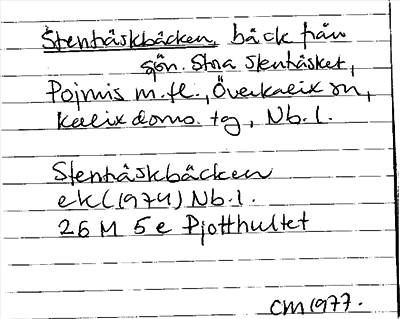 Stenträskbäcken, bäck från
sjön. Stora Stenträsket,
Pojmis m.fl., Överkalix sn,
Kalix doms. tg, Nb. l.
Stenträskbäcken
ek (1974) Nb. l.
26 M 5 e Pjotthultet
CM 1977.